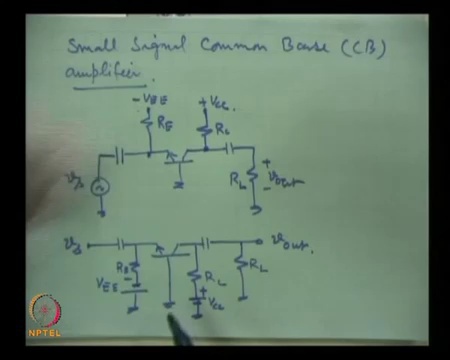 Small Signal Common Base (CB)
amplifier.
-VEE +VCC
RE RC
vs RL + vout -
vs vout.
RE
VEE - RC + VCC RL
NPTEL